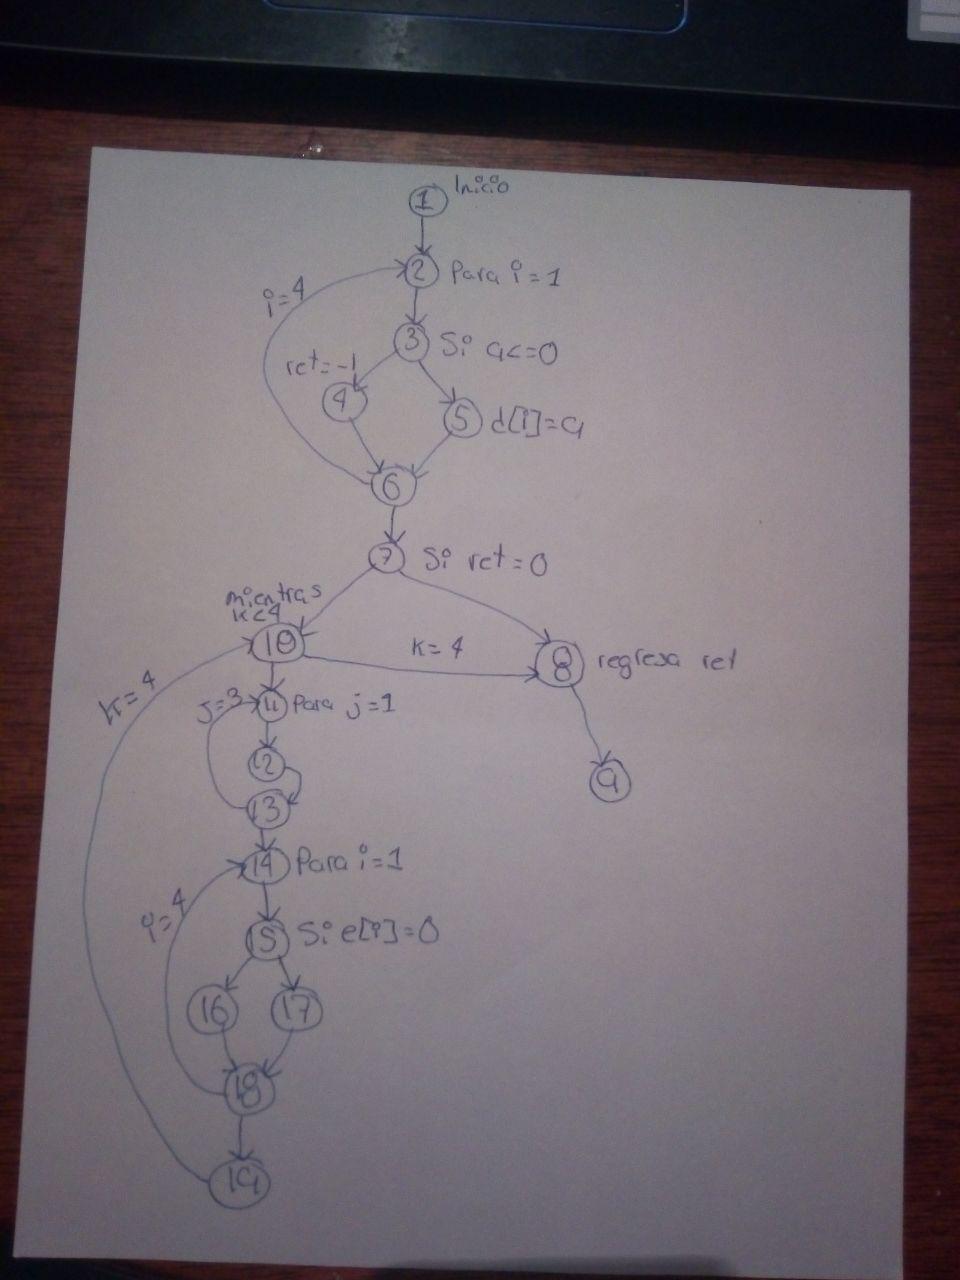 1 Inicio
2 Para i=1
i=4
3 Si a<=0
ret=-1
4
5 d[i]=a
6
7 Si ret=0
mientras
k<4
10
k=4
8 regresa ret
k=4
j=3
11 Para j=1
12
9
13
14 Para i=1
i=4
15 Si e[i]=0
16
17
18
19